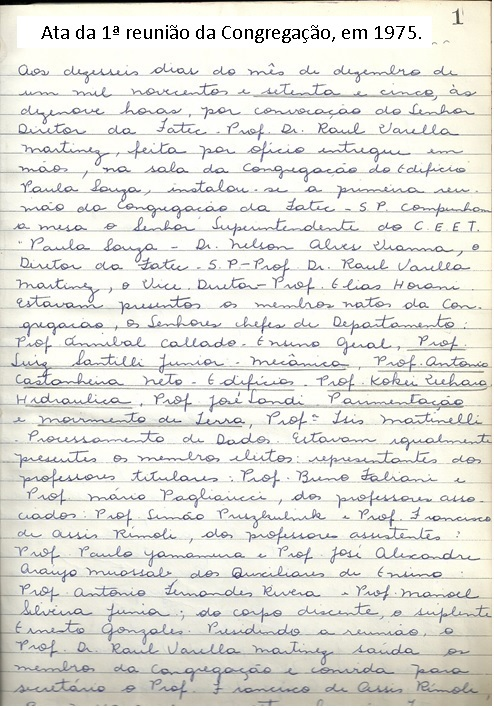 1
Ata da 1ª reunião da Congregação, em 1975.
Aos dezesseis dias do mês de dezembro de
um mil novecentos e setenta e cinco, às
dezenove horas, por convocação do Senhor
Diretor da Fatec - Prof. Dr. Raul Varella
Martinez, feita por ofício entregue em
mãos, na sala da Congregação do Edifício
Paula Souza, instalou-se a primeira reu-
nião da Congregação da Fatec - S.P. Compunham
a mesa o Senhor Superintendente do C.E.E.T.
"Paula Souza - Dr. Nelson Alves Vianna, o
Diretor da Fatec - S.P - Prof. Dr. Raul Varella
Martinez, o Vice Diretor - Prof. Elias Horani.
Estavam presentes os membros natos da Con-
gregação, os Senhores chefes de Departamento:
Prof. Annibal Callado - Ensino Geral, Prof.
Luiz Santilli Junior - Mecânica Prof. Antonio
Castanheira Neto - Edifícios. Prof. Kokei Uehara
Hidraulica, Prof. José Landi Pavimentação
e movimento de Terra, Profª Isis Martinelli
- Processamento de Dados. Estavam igualmente
presentes os membros eleitos: representantes dos
professores titulares: Prof. Bruno Faliani e
Prof. Mário Pagliaricci, dos professores asso-
ciados: Prof. Simão e Prof. Francisco
de Assis Rimoli, dos professores assistentes:
Prof. Paulo Yamamura e Prof. José Alexandre
Araujo dos Auxiliares de Ensino
Prof. Antônio Fernandes Rivera e Prof. Manoel
Silveira Junior; do corpo discente, o suplente
Ernesto Gonzales. Presidindo a reunião, o
Prof. Dr. Raul Varella Martinez saúda os
membros da Congregação e convida para
secretário o Prof. Francisco de Assis Rimoli,